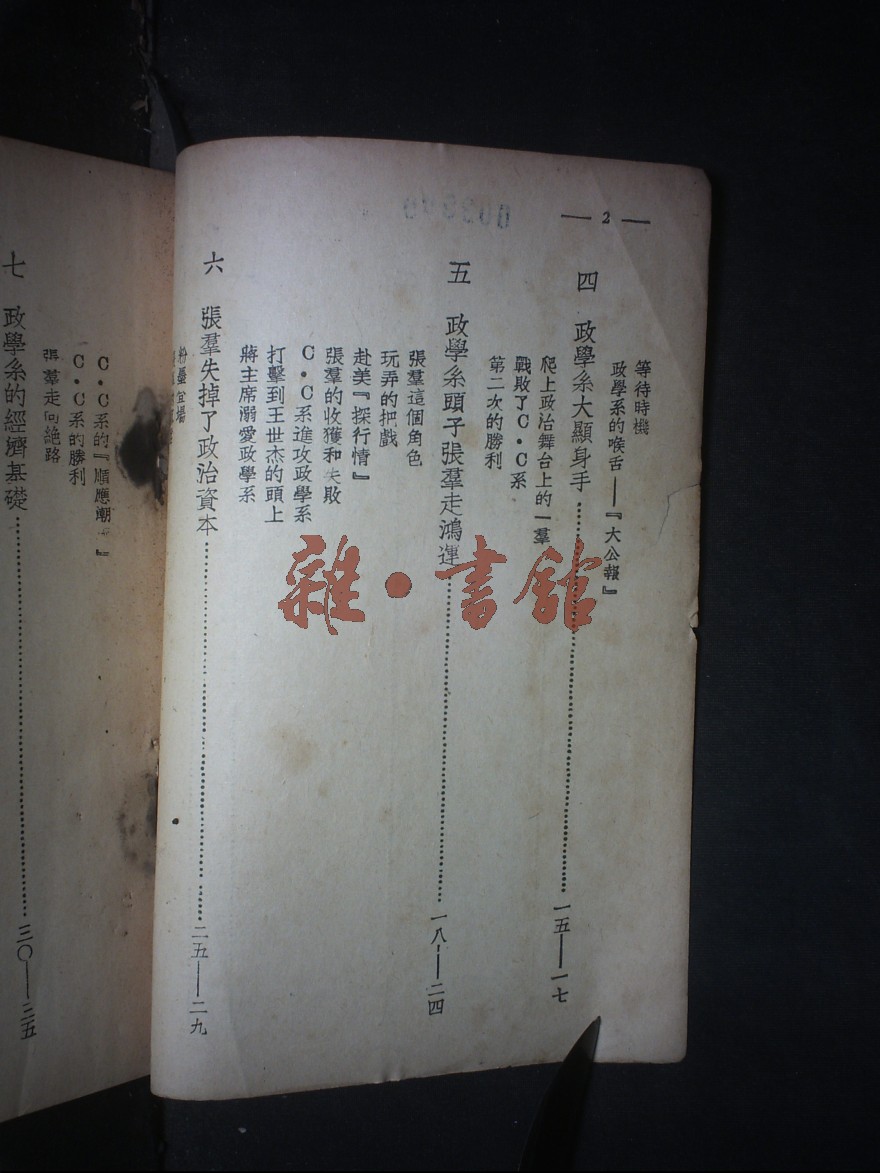 — 2 —
等待時機
政學系的喉舌——『大公報』
四 政學系大顯身手……一五——一七
爬上政治舞台上的一羣
戰敗了C·C系
第二次的勝利
五 政學系頭子張羣走鴻運……一八——二四
張羣這個角色
玩弄的把戲
赴美『探行情』
張羣的收獲和失敗
C·C系進攻政學系
打擊到王世杰的頭上
蔣主席溺愛政學系
六 張羣失掉了政治資本……二五——二九
粉墨登場
C·C系的『順應潮』
C·C系的勝利
張羣走向絶路
七 政學系的經濟基礎……三〇——三五
雜·書舘